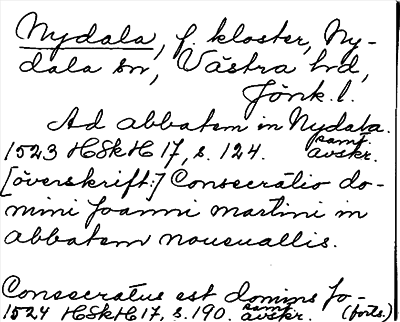 Nydala, f. kloster, Ny-
dala sn, Västra hd,
Jönk. l.
Ad abbatem in Nydala.
1523 HSkH 17, s. 124. samt. avskr.
[överskrift:] Consecratio do-
mini Joanni martini in
abbatem nouuallis.
Consecratus est dominus Jo-
1524 HSkH 17, s. 190. samt. avskr. (forts.)